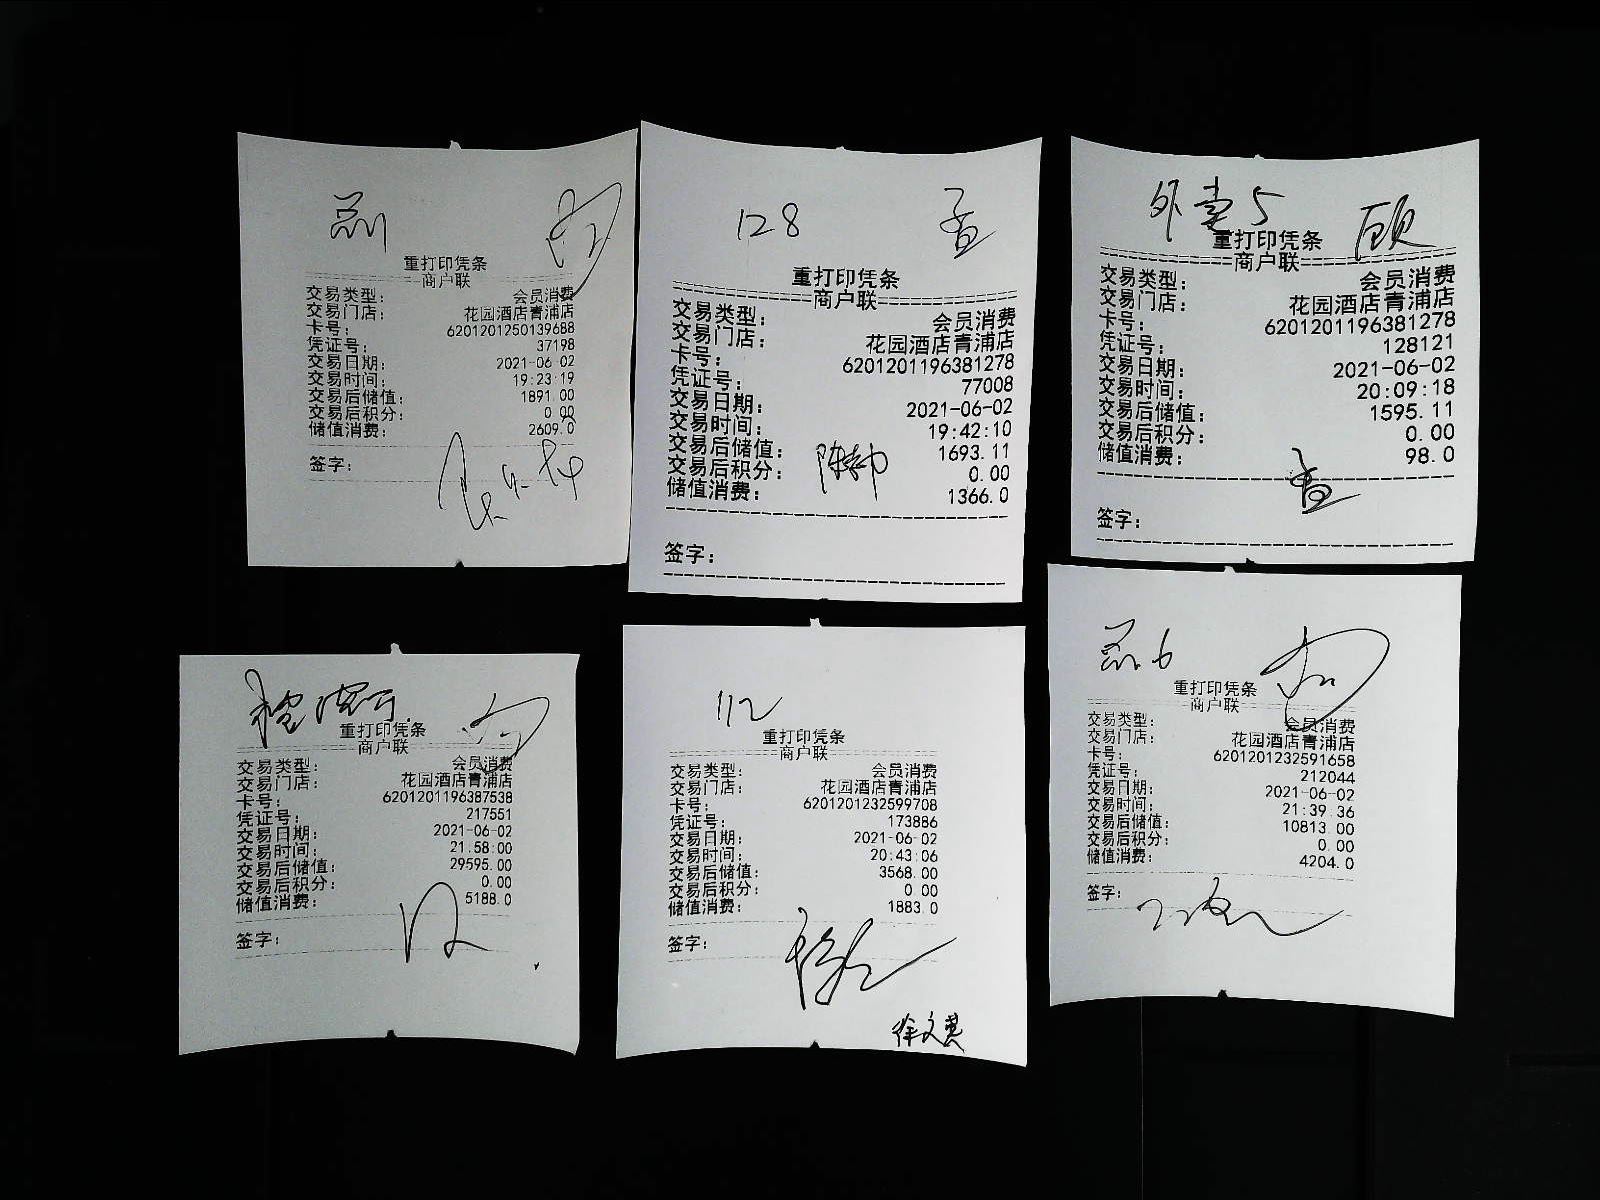 重打印凭条
商户联
交易类型： 会员消费
交易门店： 花园酒店青浦店
卡号： 6201201250139688
凭证号： 37198
交易日期： 2021-06-02
交易时间： 19:23:19
交易后储值： 1891.00
交易后积分： 0.00
储值消费： 2609.0
签字：
128
重打印凭条
商户联
交易类型： 会员消费
交易门店： 花园酒店青浦店
卡号： 6201201196381278
凭证号： 77008
交易日期： 2021-06-02
交易时间： 19:42:10
交易后储值： 1693.11
交易后积分： 0.00
储值消费： 1366.0
签字：
外卖5 顾
重打印凭条
商户联
交易类型： 会员消费
交易门店： 花园酒店青浦店
卡号： 6201201196381278
凭证号： 128121
交易日期： 2021-06-02
交易时间： 20:09:18
交易后储值： 1595.11
交易后积分： 0.00
储值消费： 98.0
签字：
重打印凭条
商户联
交易类型： 会员消费
交易门店： 花园酒店青浦店
卡号： 6201201196387538
凭证号： 217551
交易日期： 2021-06-02
交易时间： 21:58:00
交易后储值： 29595.00
交易后积分： 0.00
储值消费： 5188.0
签字：
112
重打印凭条
商户联
交易类型： 会员消费
交易门店： 花园酒店青浦店
卡号： 6201201232599708
凭证号： 173886
交易日期： 2021-06-02
交易时间： 20:43:06
交易后储值： 3568.00
交易后积分： 0.00
储值消费： 1883.0
签字：
徐文英
重打印凭条
商户联
交易类型： 会员消费
交易门店： 花园酒店青浦店
卡号： 6201201232591658
凭证号： 212044
交易日期： 2021-06-02
交易时间： 21:39:36
交易后储值： 10813.00
交易后积分： 0.00
储值消费： 4204.0
签字：